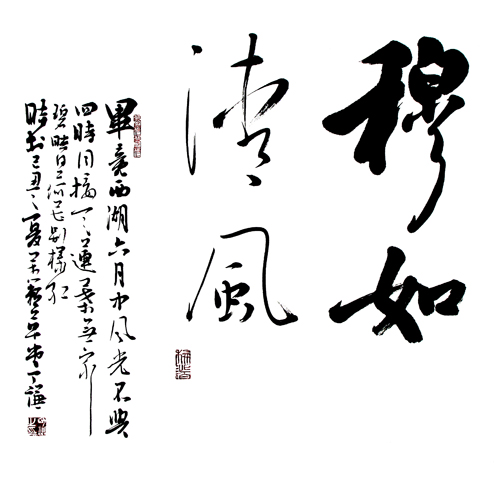 穆如
清風
畢竟西湖六月中风光不與
四時同接天蓮葉無窮
碧映日荷花別樣紅
時 己丑之夏 草堂丁謙